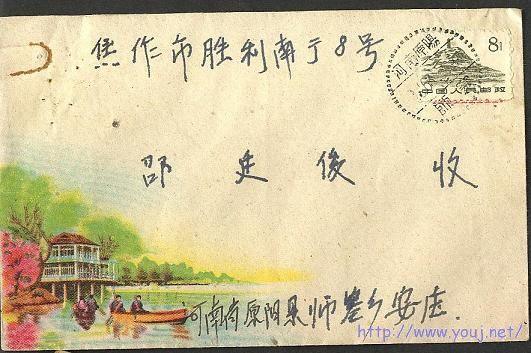 焦作市胜利南于8号
8分
河南原阳
中国人民邮政
邵廷俊 收
河南省原阳县师寨乡安庄.
http://www.youj.net/